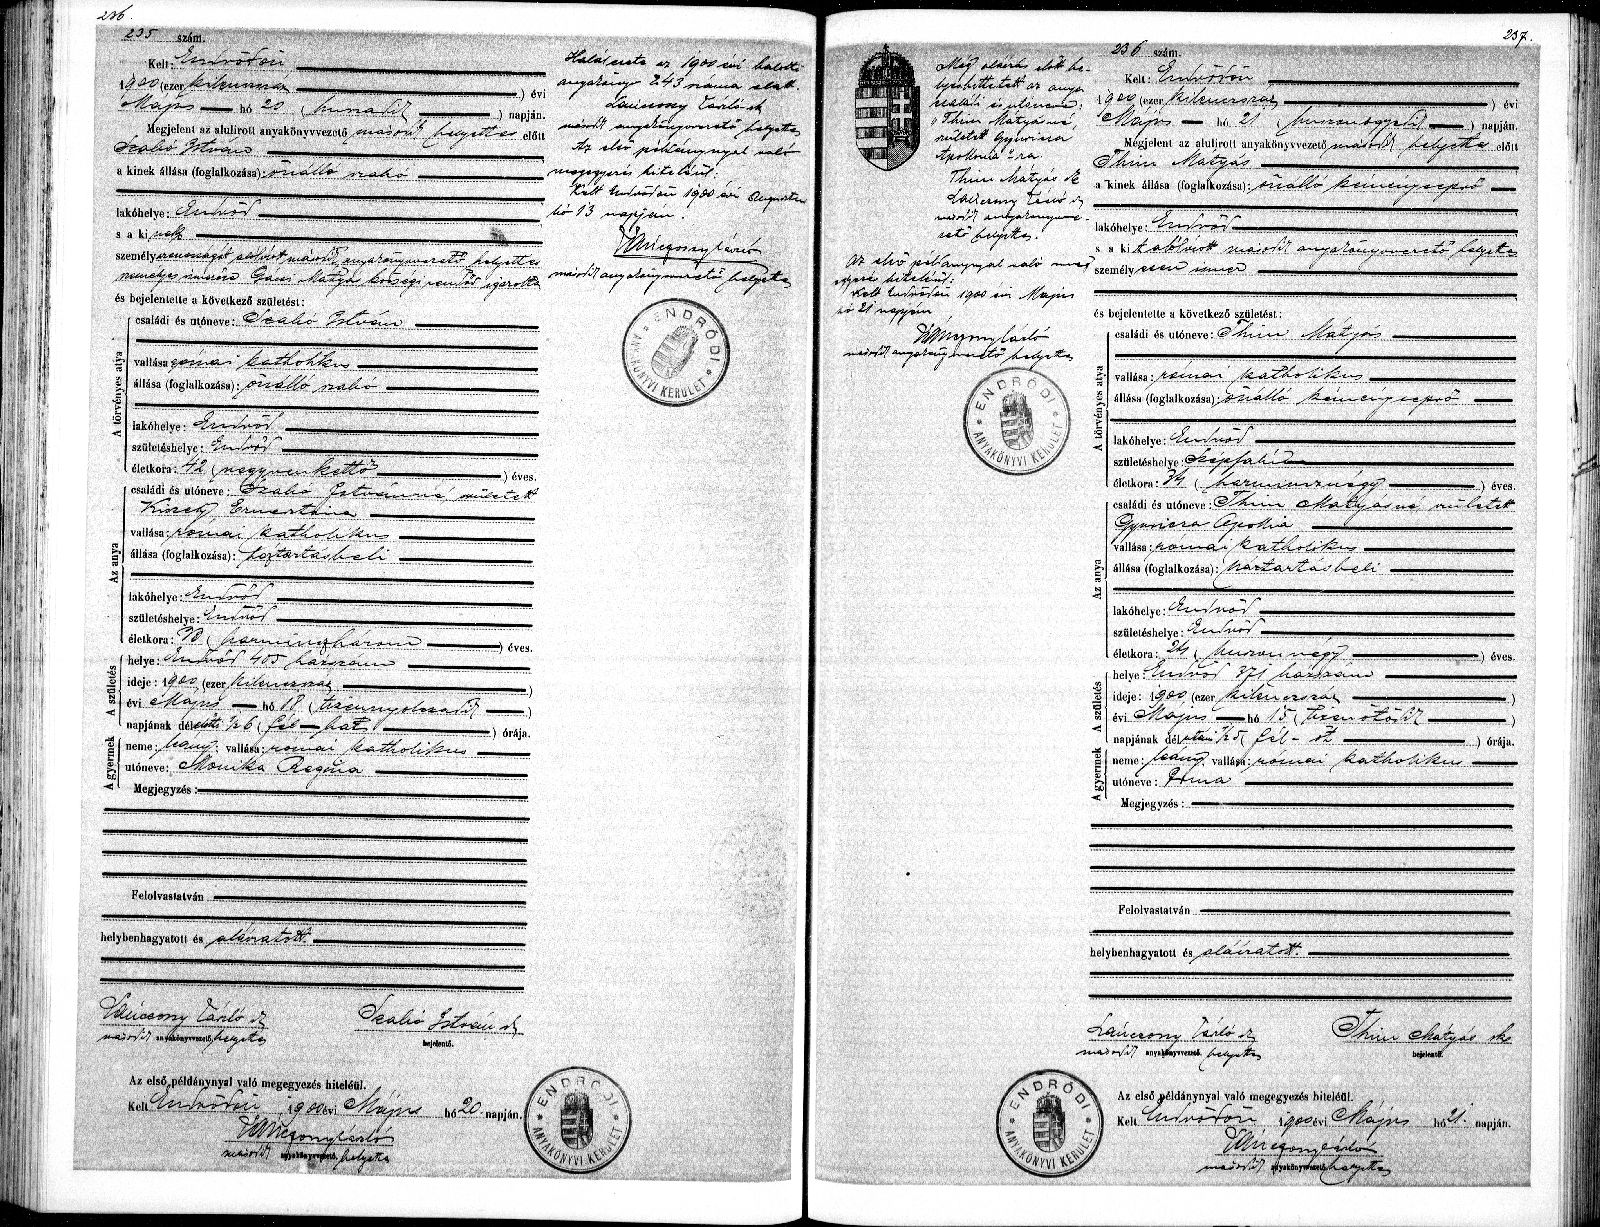 236.
235 szám.
Kelt: Endrődön
1900 (ezer kilenczszáz) évi
Május hó 20 (huszadik) napján.
Megjelent az alulirott anyakönyvvezető másodh. helyettes előtt
Szabó István
a kinek állása (foglalkozása): önálló szabó
lakóhelye: Endrőd
s a kinek
személyazonosságát alólirott másodh. anyakönyvvezető helyettes
személyes ismerőse Gaus Mátyás községi rendőr igazolta
és bejelentette a következő születést:
A törvényes atya
családi és utóneve: Szabó István
vallása: római katholikus
állása (foglalkozása): önálló szabó
lakóhelye: Endrőd
születéshelye: Endrőd
életkora: 42 (negyvenkettő) éves.
Az anya
családi és utóneve: Szabó Istvánné, született
Ernesztina
vallása: római katholikus
állása (foglalkozása): háztartásbeli
lakóhelye: Endrőd
születéshelye: Endrőd
életkora: 33 (harminczhárom) éves.
A születés
helye: Endrőd 405 házszám
ideje: 1900 (ezer kilenczszáz)
évi Május hó 18 (tizennyolczadik)
napjának délelőtti 1/2 6 (fél hat) órája.
A gyermek
neme: leány; vallása: római katholikus
utóneve: Monika Regina
Megjegyzés:
Felolvastatván
helybenhagyatott és aláiratott.
László sk
másodh. anyakönyvvezető helyettes
Szabó István sk
bejelentő.
Az első példánynyal való megegyezés hiteléül.
Kelt Endrődön, 1900 évi Május hó 20 napján.
másodh. anyakönyvvezető helyettes
ENDRŐDI
ANYAKÖNYVI KERÜLET
Halálesete az 1900 évi halotti
anyakönyv 243 száma alatt.
László sk
másodh. anyakönyvvezető helyettes
Az első példánynyal való
megegyezés hiteléül:
Kelt Endrődön 1900 évi Augusztus
hó 13 napján.
másodh. anyakönyvvezető helyettes
ENDRŐDI
ANYAKÖNYVI KERÜLET
237.
Még aláirás előtt be-
helyesbittetett az anya
családi és utóneve:
"Thim Mátyásné,
született Gyuricza
Apollonia"-ra
Thim Mátyás sk
László sk
másodh. anyakönyvve-
zető helyettes.
Az első példánynyal való meg-
egyezés hiteléül:
Kelt Endrődön 1900 évi Május
hó 21 napján
másodh. anyakönyvvezető helyettes
ENDRŐDI
ANYAKÖNYVI KERÜLET
236 szám.
Kelt: Endrődön
1900 (ezer kilenczszáz) évi
Május hó 21 (huszonegyedik) napján.
Megjelent az alulirott anyakönyvvezető másodh. helyettes előtt
Thim Mátyás
a kinek állása (foglalkozása): önálló kéményseprő
lakóhelye: Endrőd
s a kit alólirott másodh. anyakönyvvezető helyettes
személyesen ismer
és bejelentette a következő születést:
A törvényes atya
családi és utóneve: Thim Mátyás
vallása: római katholikus
állása (foglalkozása): önálló kéményseprő
lakóhelye: Endrőd
születéshelye: Szépfalu
életkora: 34 (harmincznégy) éves.
Az anya
családi és utóneve: Thim Mátyásné született
Gyuricza
vallása: római katholikus
állása (foglalkozása): háztartásbeli
lakóhelye: Endrőd
születéshelye: Endrőd
életkora: 24 (huszonnégy) éves.
A születés
helye: Endrőd 371 házszám
ideje: 1900 (ezer kilenczszáz)
évi Május hó 15 (tizenötödik)
napjának délutáni 1/2 5 (fél-öt) órája.
A gyermek
neme: leány; vallása: római katholikus
utóneve: Irma
Megjegyzés:
Felolvastatván
helybenhagyatott és aláiratott.
László sk
másodh. anyakönyvvezető helyettes
Thim Mátyás sk
bejelentő.
Az első példánynyal való megegyezés hiteléül.
Kelt Endrődön 1900 évi Május hó 21. napján.
másodh. anyakönyvvezető helyettes
ENDRŐDI
ANYAKÖNYVI KERÜLET